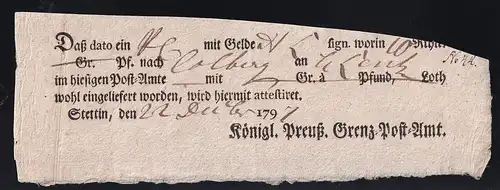 Daß dato ein mit Gelde sign. worin 10 Rthlr.
Gr. Pf. nach Colberg an
im hiesigen Post-Amte mit Gr. à Pfund, Loth
wohl eingeliefert worden, wird hiermit attestiret.
Stettin, den 22 Decbr 1797
Königl. Preuß. Grenz-Post-Amt.